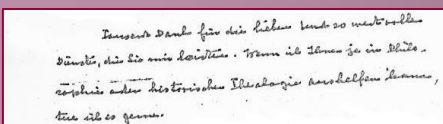 Tausend Dank für die lieben und so wertvollen
Dienste, die Sie mir leisten. Wenn ich Ihnen je in Philo-
sophie oder historischer Theologie aushelfen kann,
tue ich es gerne.